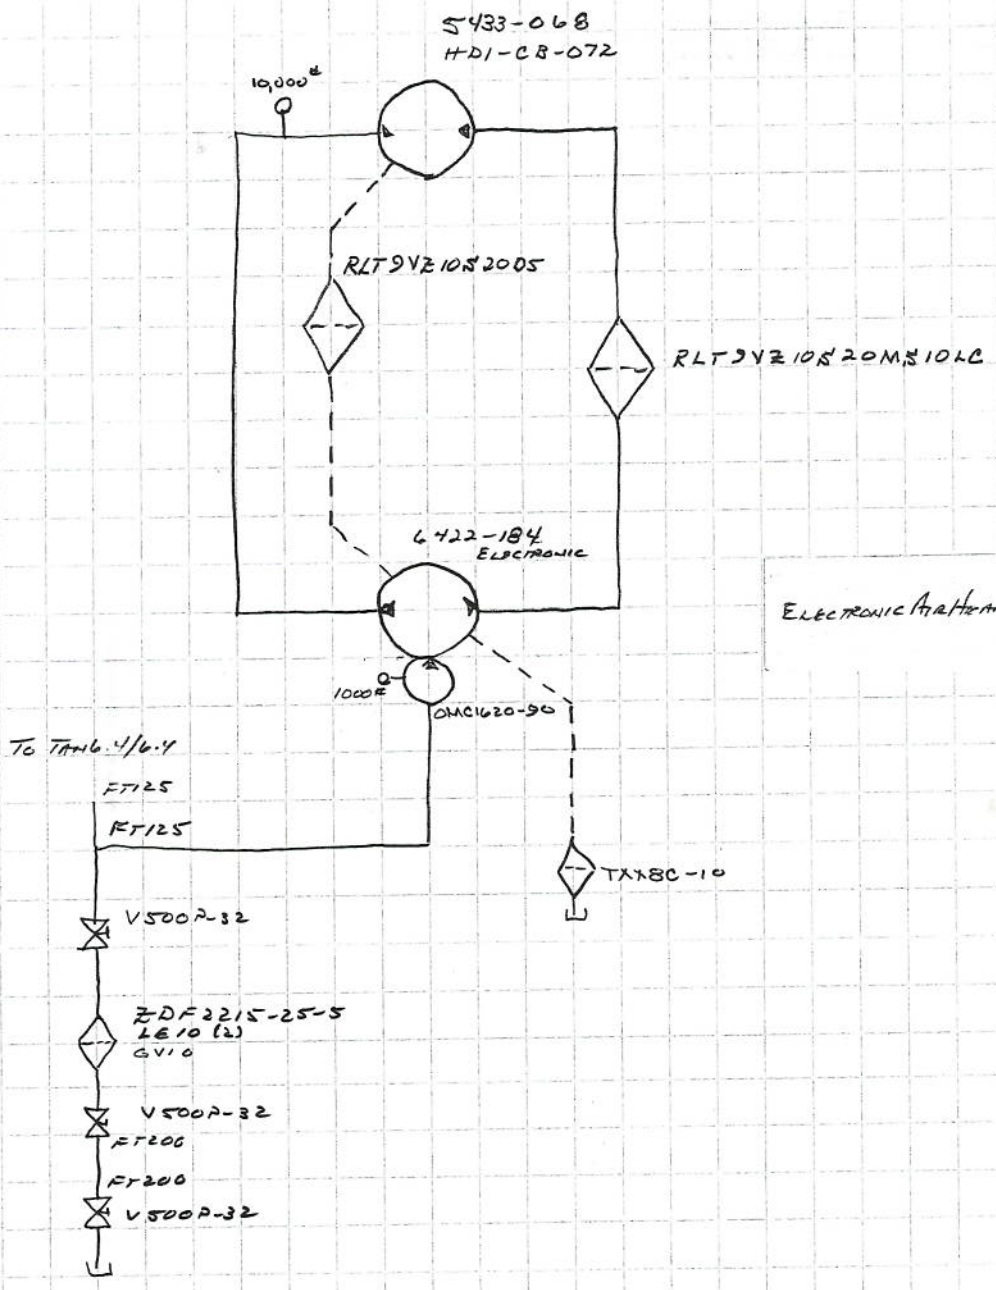 5433-068
HD1-CB-072
10,000#
RLT9VZ10S20D5
RLT9VZ10S20MS10LC
6422-184
ELECTRONIC
ELECTRONIC
1000#
OMC1620-90
FT125
FT125
TXX8C-10
V500P-32
ZDF2215-25-5
LE10 (2)
GV10
V500P-32
FT200
FT200
V500P-32